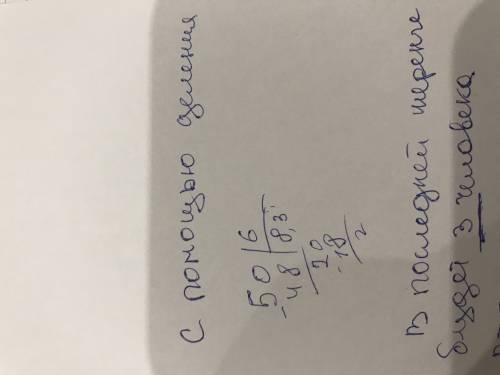 С помощью деления
50 | 6
-48 | 8,3
20
-18
2
В последней шеренге
будет 3 человека